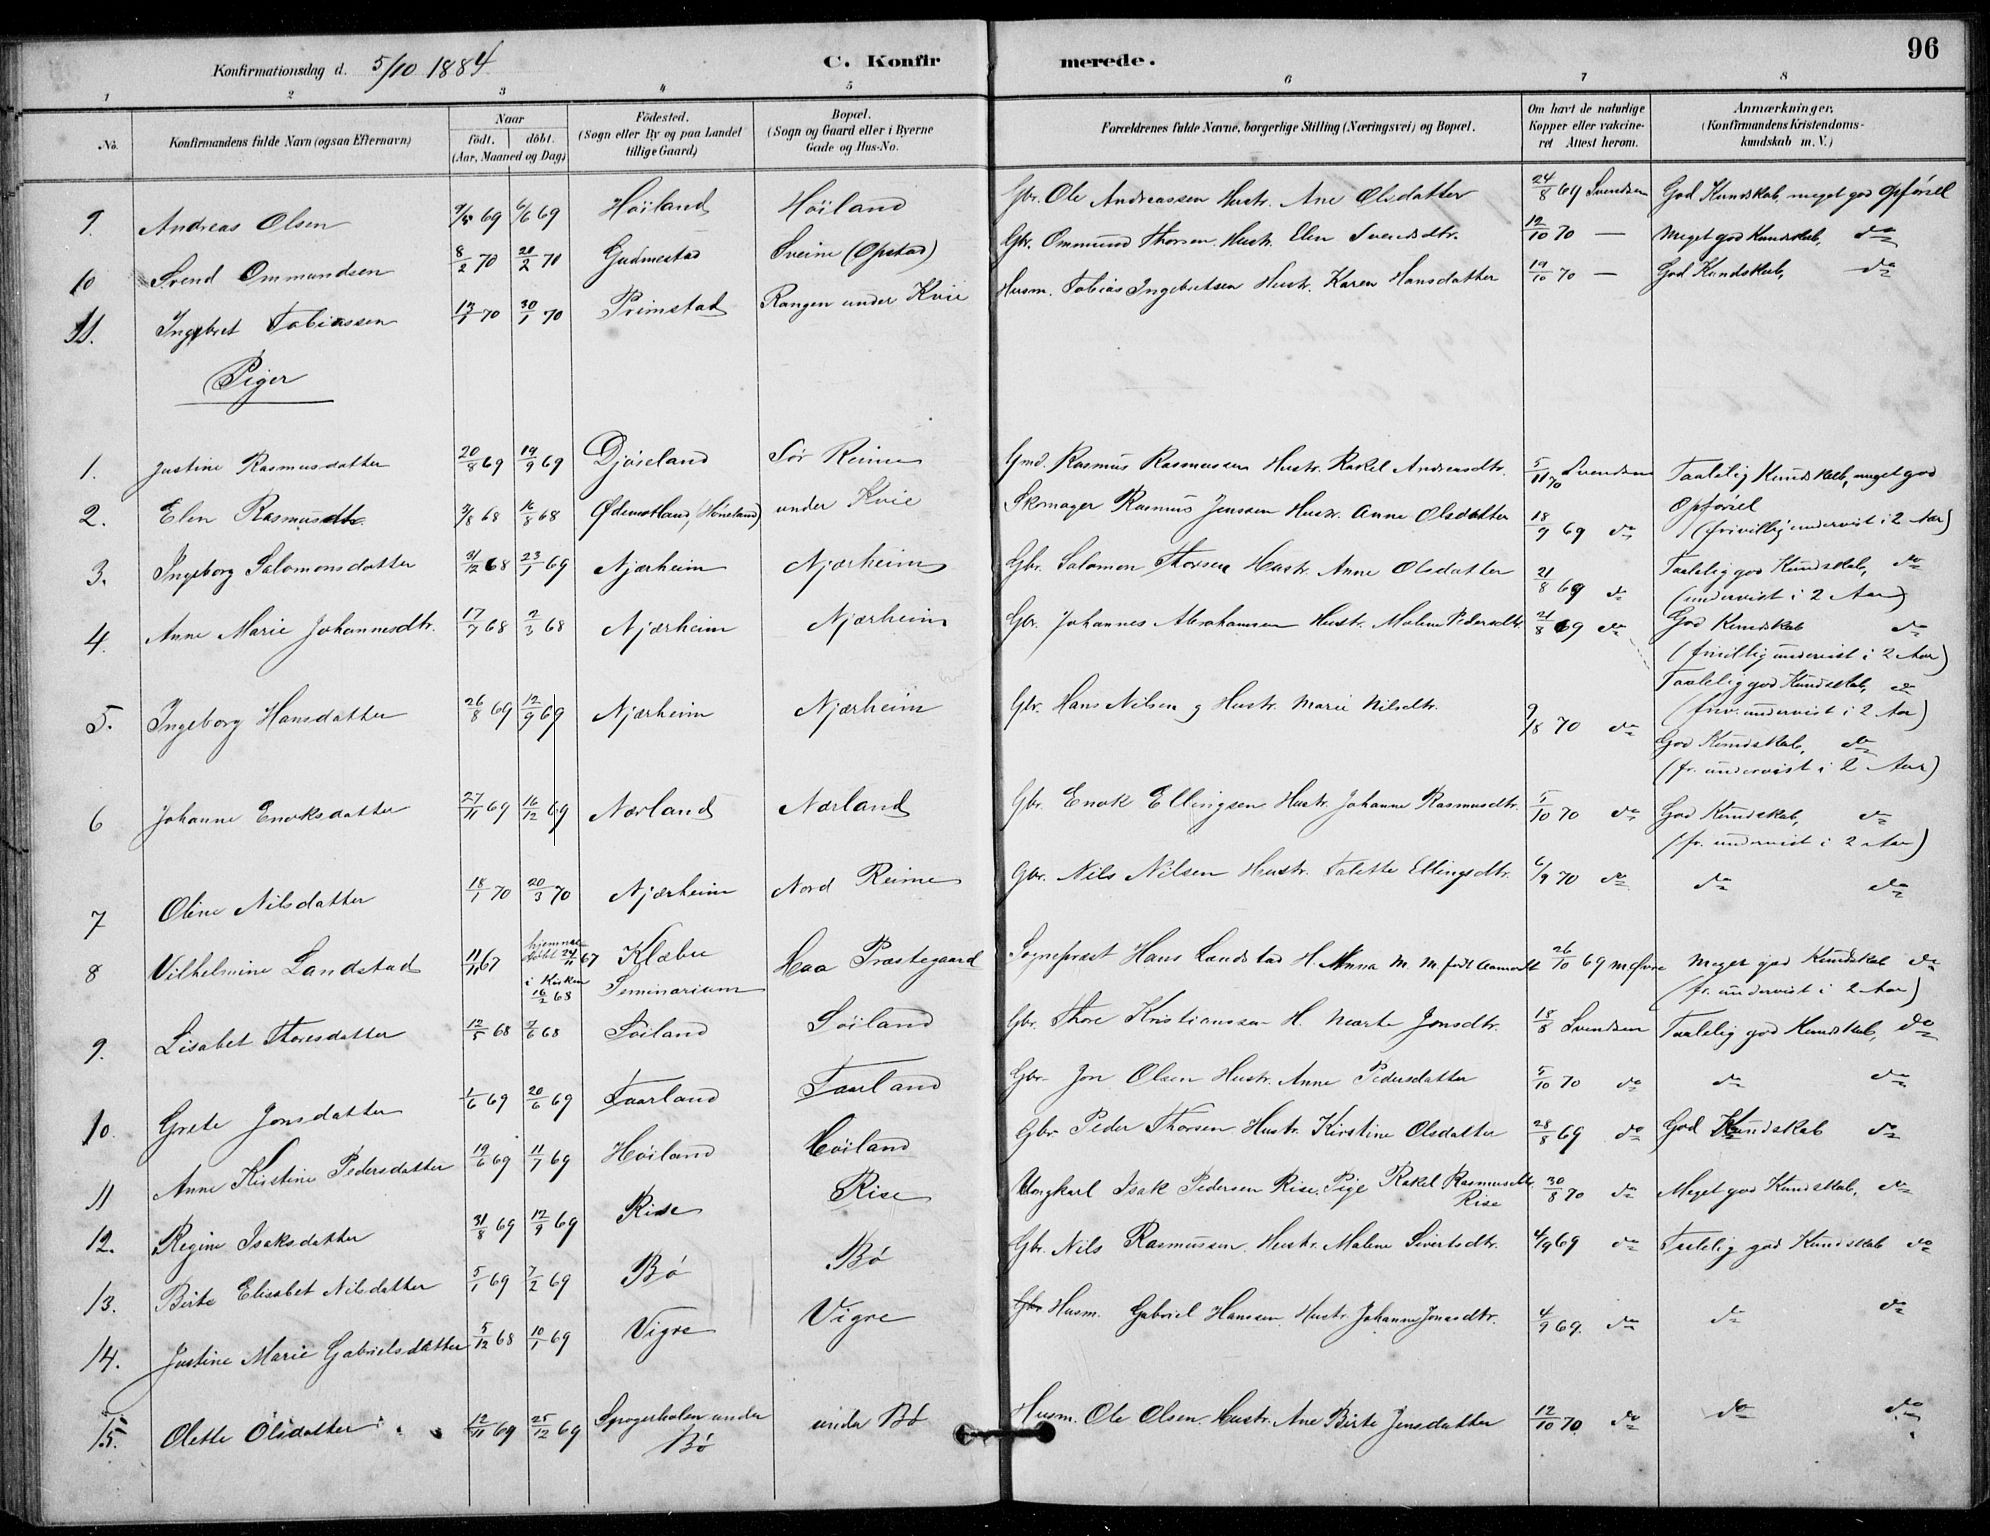 Konfirmationsdag d. 5/10 1884. C. Konfirmerede. 96
1 2 3 4 5 6 7 8
No. Konfirmandens fulde Navn (ogsaa Efternavn) Naar födt. döbt. (Aar, Maaned og Dag) Födested. (Sogn eller By og paa Landet tillige Gaard) Bopæl. (Sogn og Gaard eller i Byerne Gade og Hus-No. Forældrenes fulde Navne, borgerlige Stilling (Næringsvei) og Bopæl. Om havt de naturlige Kopper eller vakcineret Attest herom. Anmærkninger, (Konfirmandens Kristendomskundskab m. V.)
9. Andreas Olsen 9/5 69 6/6 69 Höiland Höiland Gbr. Ole Andreassen Hustr. Ane Olsdatter 24/8 69 Svendsen God Kundskab, meget god Opförsel
10 Svend Ommundsen 8/2 70 20/2 70 Gudmestad Sveine (Opstad) Gbr. Ommund Thorsen. Hustr. Elen Svendsdtr. 12/10 70 — Meget god Kundskab, do
11. Ingebret Tobiassen 13/1 70 30/1 70 Primstad Rangen under Kvie Husm. Tobias Ingebretsen Hustr. Karen Hansdatter 19/10 70 — God Kundskab, do
Piger
1. Justine Rasmusdatter 20/8 69 19/9 69 Djöseland Sör Reime Gmd. Rasmus Rasmussen Hustr. Rakel Andreasdtr. 5/11 70 Svendsen Taalelig Kundskab, meget god Opförsel
2. Elen Rasmusdtr. 9/8 68 16/8 68 Ödemotland, (Höneland) under Kvie Skomager Rasmus Jenssen Hustr. Anne Olsdatter 18/9 69 do (frivillig undervist i 2 Aar)
3. Ingeborg Salomonsdatter 31/12 68 23/1 69 Njærheim Njærheim Gbr. Salomon Thorsen Hustr. Anne Olsdatter 21/8 69 do Taalelig god Kundskab, do
(undervist i 2 Aar)
4. Anne Marie Johannesdtr. 17/7 68 2/3 68 Njærheim Njærheim Gbr. Johannes Abrahamsen Hustr. Malene Pedersdtr. 21/8 69 do God Kundskab do
(frivillig undervist i 2 Aar)
Taalelig god Kundskab, do
5. Ingeborg Hansdatter 26/8 69 12/9 69 Njærheim Njærheim Gbr. Hans Nilsen og Hustr. Marie Nilsdtr. 9/8 70 do (friv. undervist i 2 Aar)
God Kundskab, do
(fr. undervist i 2 Aar)
6 Johanne Enoksdatter 27/11 69 16/12 69 Nærland Nærland Gbr. Enok Ellingsen Hustr. Johanne Rasmusdtr. 5/10 70 do God Kundskab, do
(fr. undervist i 2 Aar)
7 Oline Nilsdatter 18/1 70 20/3 70 Njærheim Nord Reime Gbr. Nils Nilsen Hustr. Talette Ellingsdtr. 6/9 70 do do do
8 Vilhelmine Landstad 11/11 67 hjemmedöbt 24/11 67 i Kirken 16/2 68 Klæbu Seminarium Haa Præstegaard Sognepræst Hans Landstad H. Anna M. M. födt Aamodt 26/10 69 Meget god Kundskab do
(fr. undervist i 2 Aar)
9. Lisabet Thoresdatter 12/5 68 7/6 68 Söiland Söiland Gbr. Thore Kristianssen H. Marte Jonsdtr. 18/8 Svendsen Taalelig god Kundskab, do
10. Grete Jonsdatter 1/6 69 20/6 69 Taarland Taarland Gbr. Jon Olsen Hustr. Anne Pedersdatter 5/10 70 do do do
11 Anne Kirstine Pedersdatter 19/6 69 11/7 69 Höiland Höiland Gbr. Peder Thorsen Hustr. Kirstine Olsdatter 28/8 69 do God Kundskab do
12. Regine Isaksdatter 31/8 69 12/9 69 Rise Rise Ungkarl Isak Pedersen Rise. Pige Rakel Rasmusdtr. Rise 30/8 70 do Meget god Kundskab, do
13. Birte Elisabet Nilsdatter 5/1 69 7/2 69 Bö Bö Gbr. Nils Rasmussen. Hustr. Malene Sivertsdtr. 4/9 69 do Taalelig god Kundskab do
14. Justine Marie Gabrielsdatter 5/12 68 10/1 69 Vigre Vigre Gbr Husm. Gabriel Hanssen. Hustr. Johanne Jonasdtr. 4/9 69. do do do
15. Olette Olsdatter 12/11 69 25/12 69 under Bö under Bö Husm. Ole Olsen. Hustr. Ane Birte Jensdatter 12/10 70 do do do